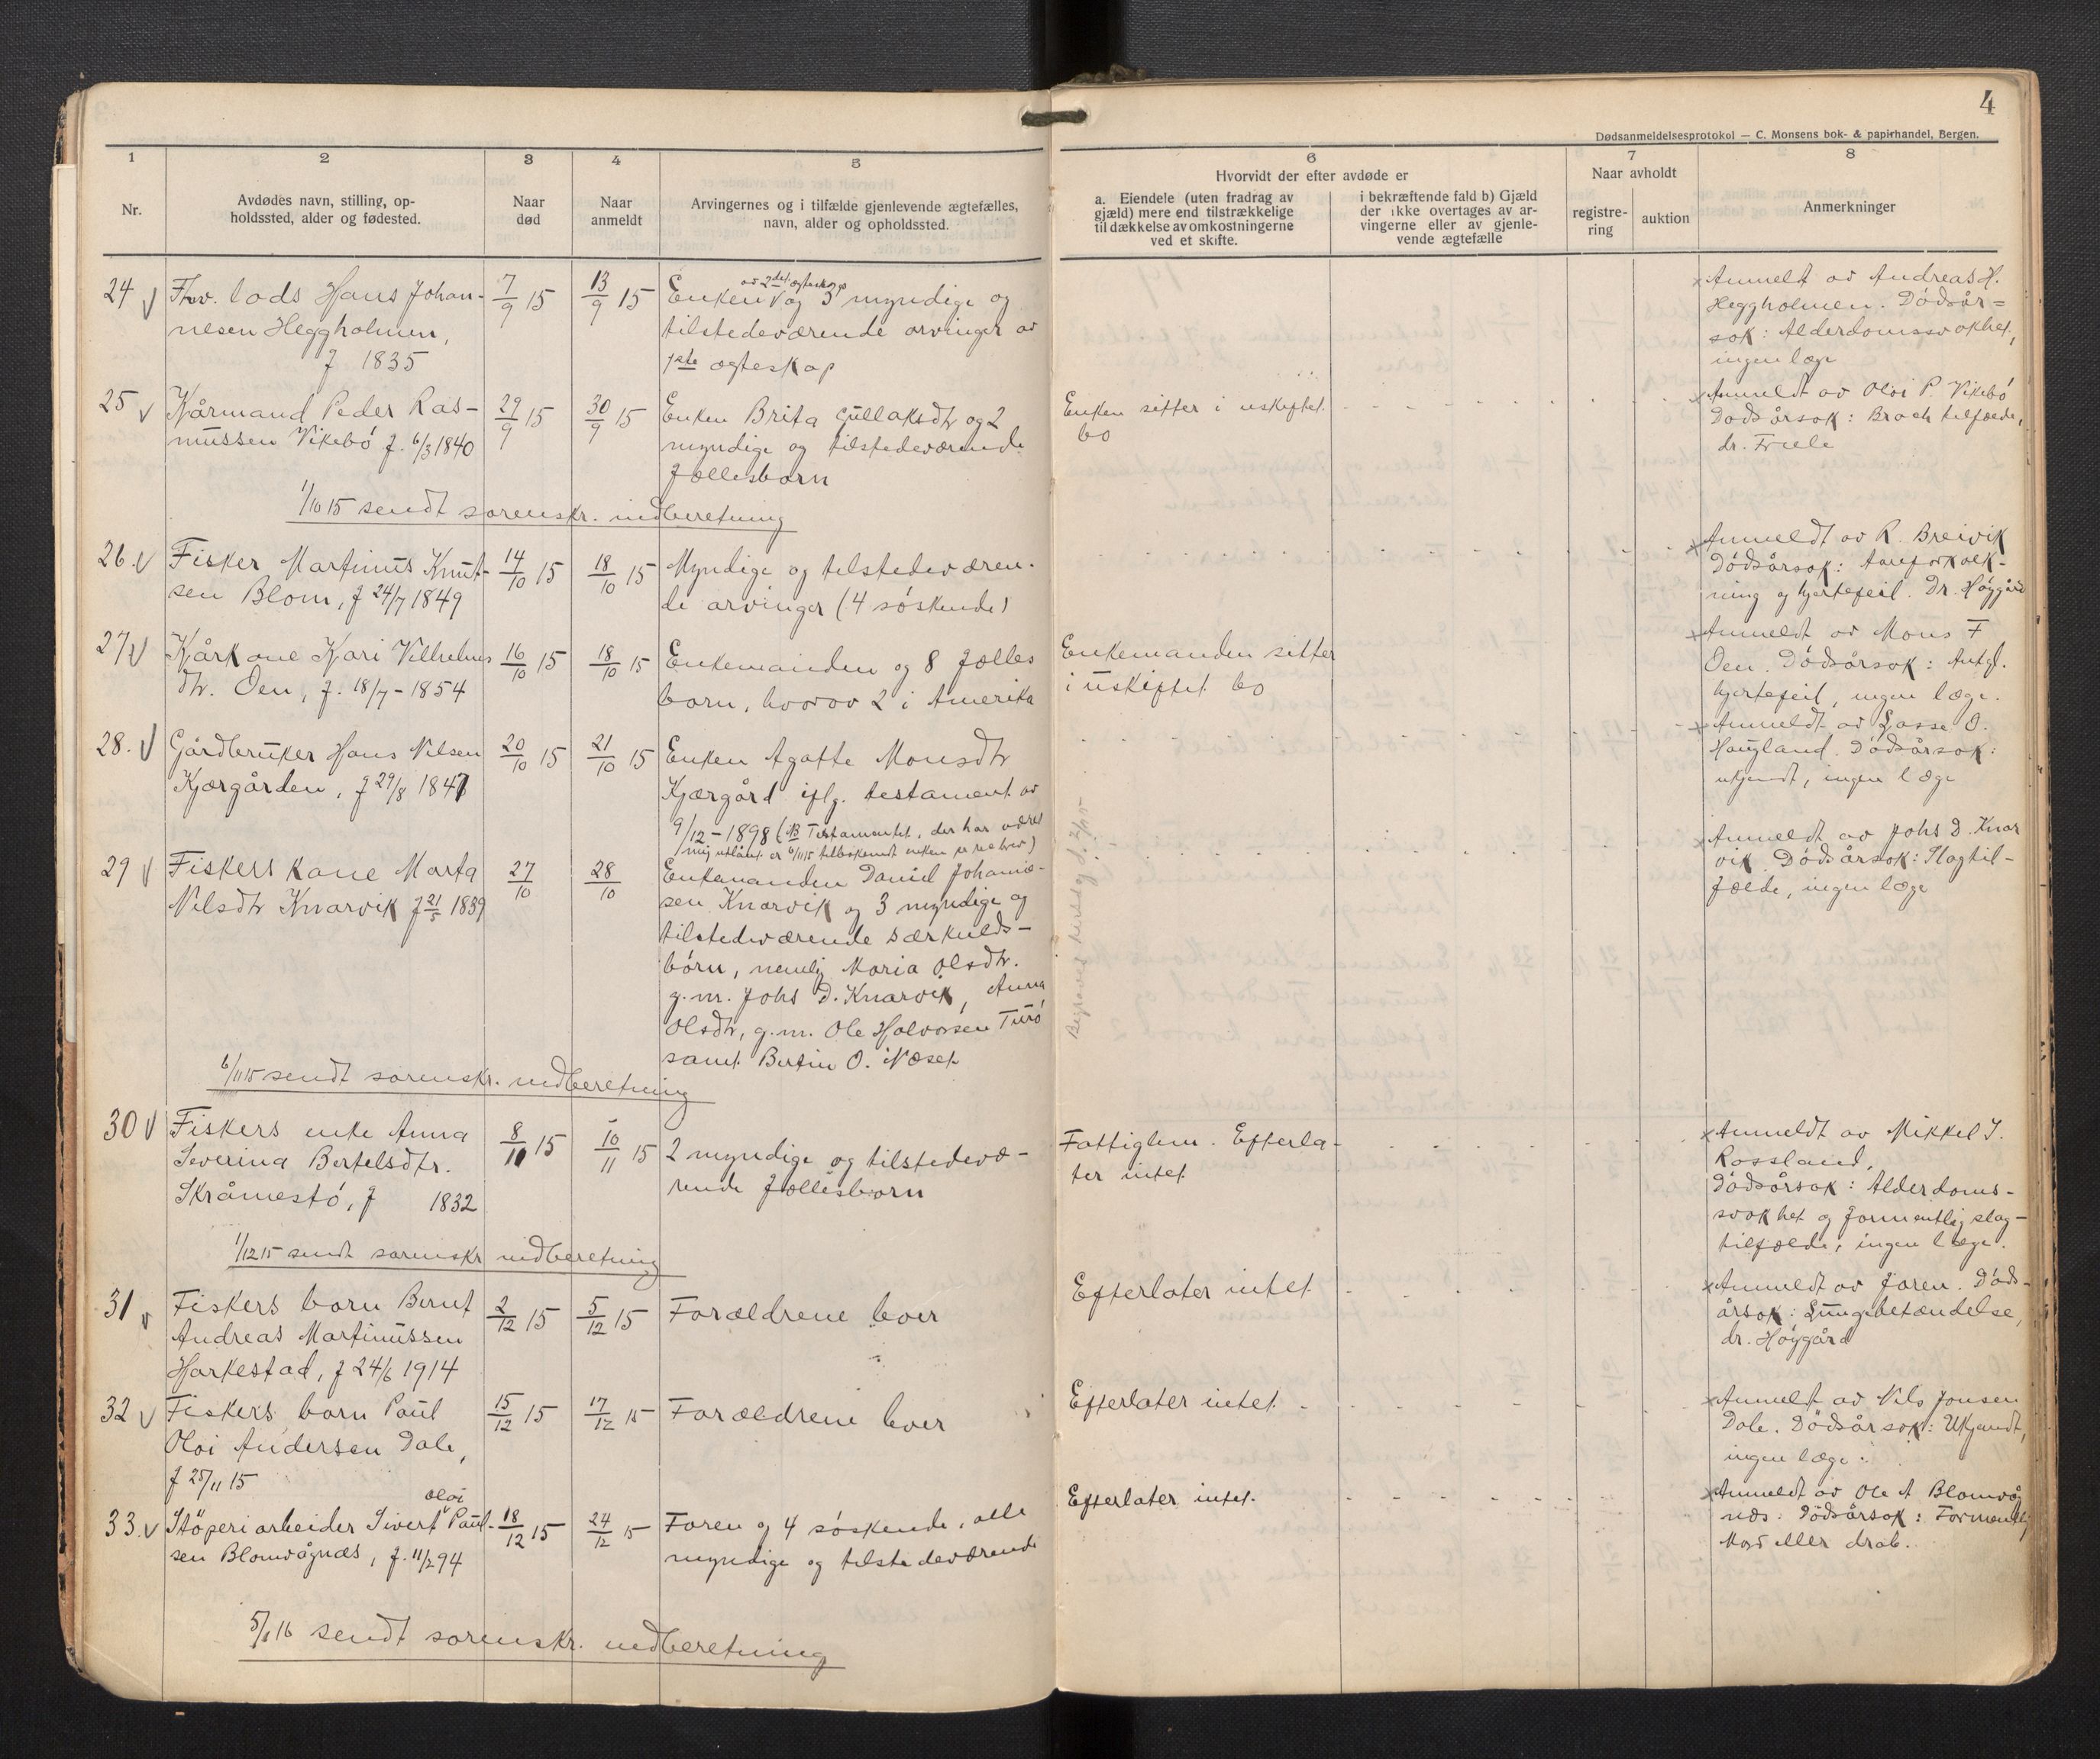 4
Dødsanmeldelsesprotokol — C. Monsens bok- & papirhandel, Bergen.
1
2
3
4
5
6
7
8
Nr.
Avdødes navn, stilling, op-
holdssted, alder og fødested.
Naar
død
Naar
anmeldt
Arvingernes og i tilfælde gjenlevende ægtefælles,
navn, alder og opholdssted.
Hvorvidt der efter avdøde er
a. Eiendele (uten fradrag av
gjæld) mere end tilstrækkelige
til dækkelse av omkostningerne
ved et skifte.
i bekræftende fald b) Gjæld
der ikke overtages av ar-
vingerne eller av gjenle-
vende ægtefælle
Naar avholdt
registre-
ring
auktion
Anmerkninger
24
Fhv. lods Hans Johan-
nesen Heggholmen,
f 1835
7/9 15
13/9 15
av 2det ægteskap
Enken og 3 myndige og
tilstedeværende arvinger av
1ste ægteskap
Anmeldt av Andreas H.
Heggholmen. Dödsår=
sak: Alderdomssvakhet,
ingen læge
25
Kårmand Peder Ras-
mussen Vikebö f. 6/3 1840
29/9 15
30/9 15
Enken Brita Gullaksdtr og 2
myndige og tilstedeværende
fællesbarn
Enken sitter i uskiftet
bo
Anmeldt av Olai P. Vikebö
Dödsårsak: Brach tilfælde,
dr. Friele
1/10 15 sendt sorenskr. indberetning
26
Fisker Martinus Knut-
sen Blom, f 24/7 1849
14/10 15
18/10 15
Myndige og tilstedeværen-
de arvinger (4 söskende)
Anmeldt av R. Breivik
Dödsårsak: Aareforkalk-
ning og hjertefeil. Dr. Höygård
27
Kårkone Kari Vilhelms
dtr. Oen, f. 18/7 - 1854
16/10 15
18/10 15
Enkemanden og 8 fælles
barn, hvorav 2 i Amerika
Enkemanden sitter
i uskiftet bo
Anmeldt av Mons F
Oen. Dödsårsak: Antgl.
hjertefeil, ingen læge.
28.
Gårdbruker Hans Nilsen
Kjærgården, f 29/8 1847
20/10 15
21/10 15
Enken Agatte Monsdtr
Kjærgård iflg. testament av
9/12 - 1898 (NB Testamentet, der har været
mig utlånt er 6/11 15 tilbakesendt enken pr
Anmeldt av Lasse O.
Haugland. Dödsårsak:
ukjendt, ingen læge
29
Fiskers kone Marta
Nilsdtr Knarvik f 21/5 1839
27/10
28/10
Enkemanden Daniel Johanne-
sen Knarvik og 3 myndige og
tilstedeværende særkulds-
börn, nemlig Maria Olsdtr.
g.m. Johs D. Knarvik, Anna
Olsdtr, g.m. Ole Halvorsen Turö
samt Bertin O. Næset
Anmeldt av Johs D. Knar
vik. Dödsårsak: Slagtil-
fælde, ingen læge
6/11 15 sendt sorenskr. indberetning
30
Fiskers enke Anna
Severina Bertelsdtr.
Skråmestö, f 1832
8/11 15
10/11 15
2 myndige og tilstedevæ-
rende fællesbarn
Fattiglem. Efterla-
ter intet
Anmeldt av Mikkel J.
Rossland,
Dödsårsak: Alderdoms-
svakhet og formentlig slag-
tilfælde, ingen læge.
1/12 15 sendt sorenskr indberetning
31
Fiskers barn Bernt
Andreas Martinussen
Harkestad, f 24/6 1914
2/12 15
5/12 15
Forældrene lever
Efterlater intet
Anmeldt av faren. Döds-
årsak: Lungebetændelse,
dr. Höygård
32
Fiskers barn Paul
Olai Andersen Dale,
f 25/11 15
15/12 15
17/12 15
Forældrene lever
Efterlater intet
Anmeldt av Nils Jonsen
Dale. Dödsårsak: Ukjendt,
ingen læge.
33
Olai
Stöperiarbeider Sivert Paul-
sen Blomvågnæs, f. 11/2 94
18/12 15
24/12 15
Faren og 4 söskende, alle
myndige og tilstedeværende
Efterlater intet
Anmeldt av Ole A Blomvåg
næs. Dödsårsak: Formentlig
Mord eller drab.
5/1 16 sendt sorenskr. indberetning